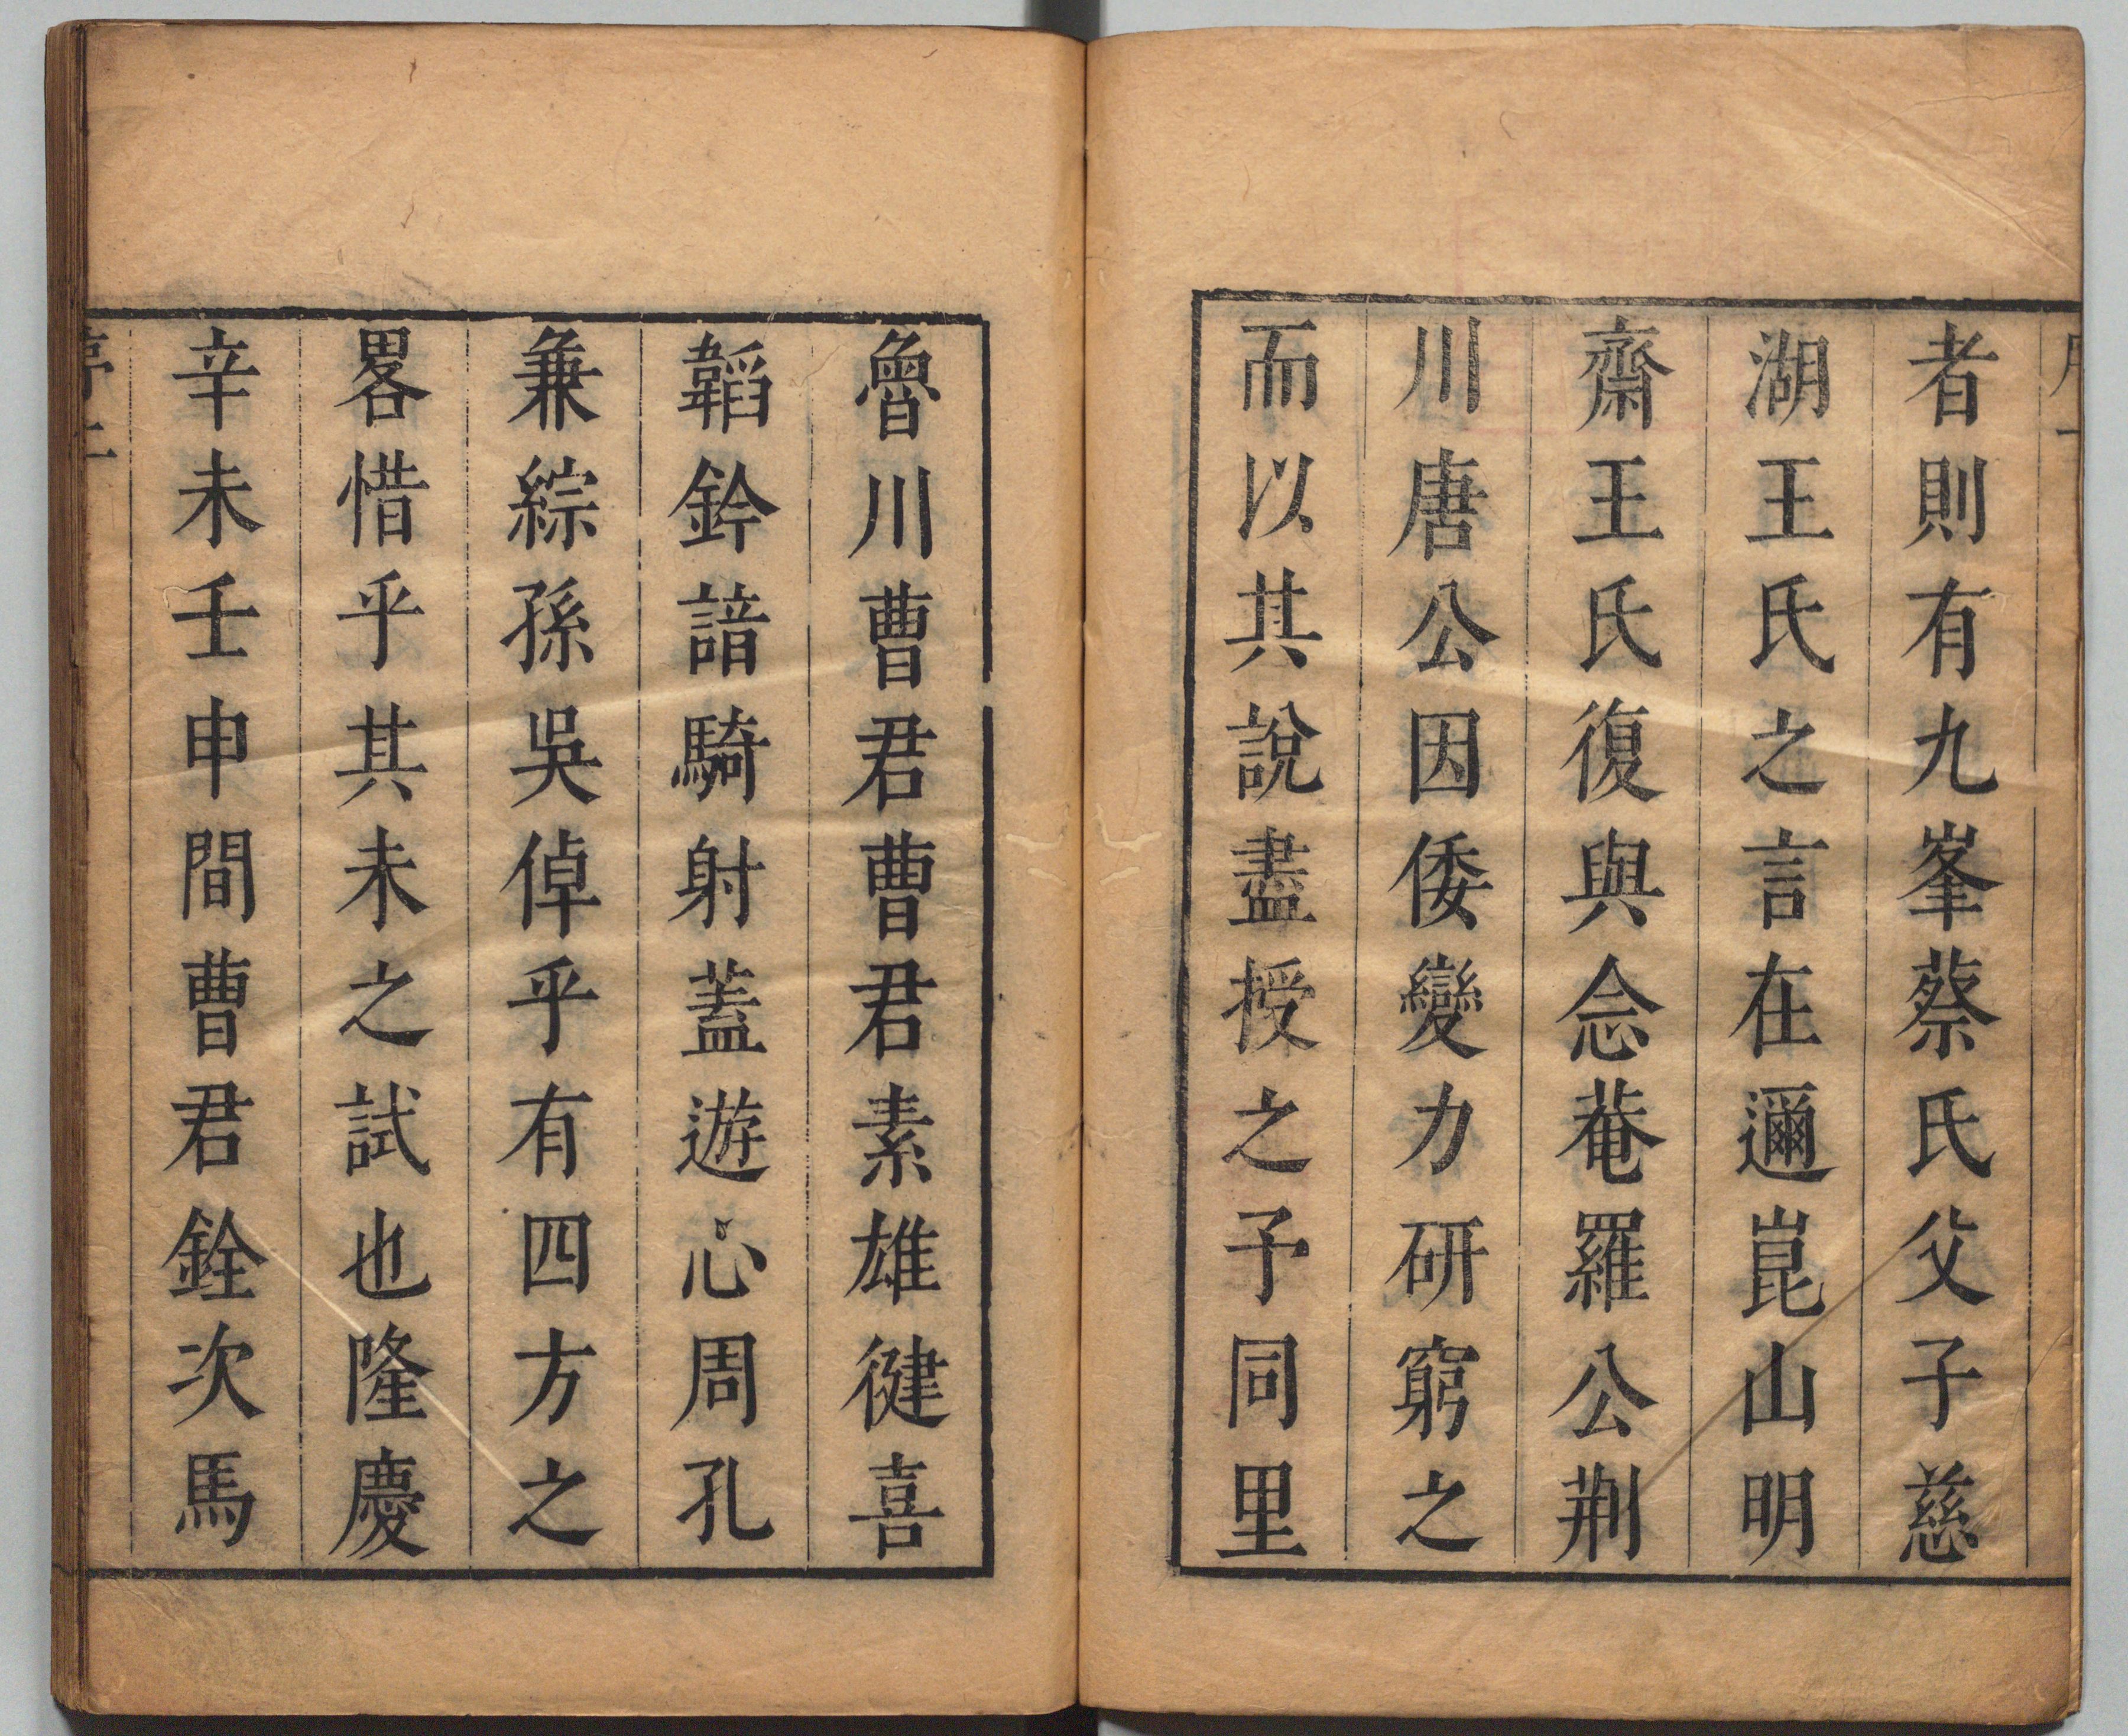 者則有九峯蔡氏父子慈
湖王氏之言在邇崑山明
齋王氏復與念菴羅公荆
川唐公因倭變力研窮之
而以其說盡授之予同里
魯川曹君曹君素雄徤喜
韜鈐諳騎射蓋遊心周孔
兼綜孫吳倬乎有四方之
畧惜乎其未之試也隆慶
辛未壬申間曹君銓次馬